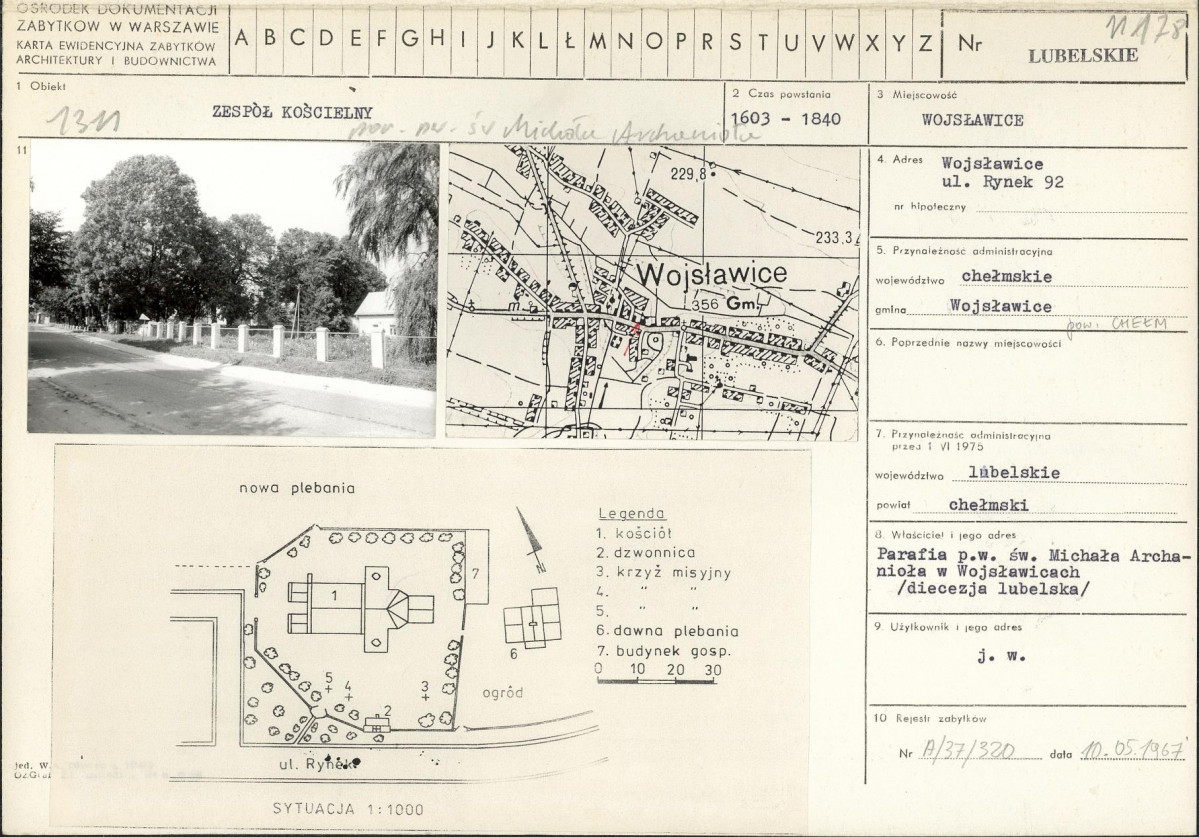 OŚRODEK DOKUMENTACJI
ZABYTKÓW W WARSZAWIE
KARTA EWIDENCYJNA ZABYTKÓW
ARCHITEKTURY I BUDOWNICTWA
A B C D E F G H I J K L Ł M N O P R S T U V W X Y Z
Nr
LUBELSKIE
1 Obiekt
1311
ZESPÓŁ KOŚCIELNY
par. pw. św Michała Archanioła
2 Czas powstania
1603 - 1840
3 Miejscowość
WOJSŁAWICE
11
229,8
233,3
Wojsławice
356 Gm.
m
4. Adres Wojsławice
ul. Rynek 92
nr hipoteczny
5. Przynależność administracyjna
województwo chełmskie
gmina Wojsławice
pow. CHEŁM
6. Poprzednie nazwy miejscowości
7. Przynależność administracyjna
przed 1 VI 1975
województwo lubelskie
powiat chełmski
8. Właściciel i jego adres
Parafia p.w. św. Michała Archa-
nioła w Wojsławicach
/diecezja lubelska/
9. Użytkownik i jego adres
j. w.
10 Rejestr zabytków
Nr A/37/320 data 10.05.1967
nowa plebania
1
2
3
4
5
6
7
N
ogród
ul. Rynek
Legenda
1. kościół
2. dzwonnica
3. krzyż misyjny
4. " "
5. " "
6. dawna plebania
7. budynek gosp.
0 10 20 30
SYTUACJA 1:1000